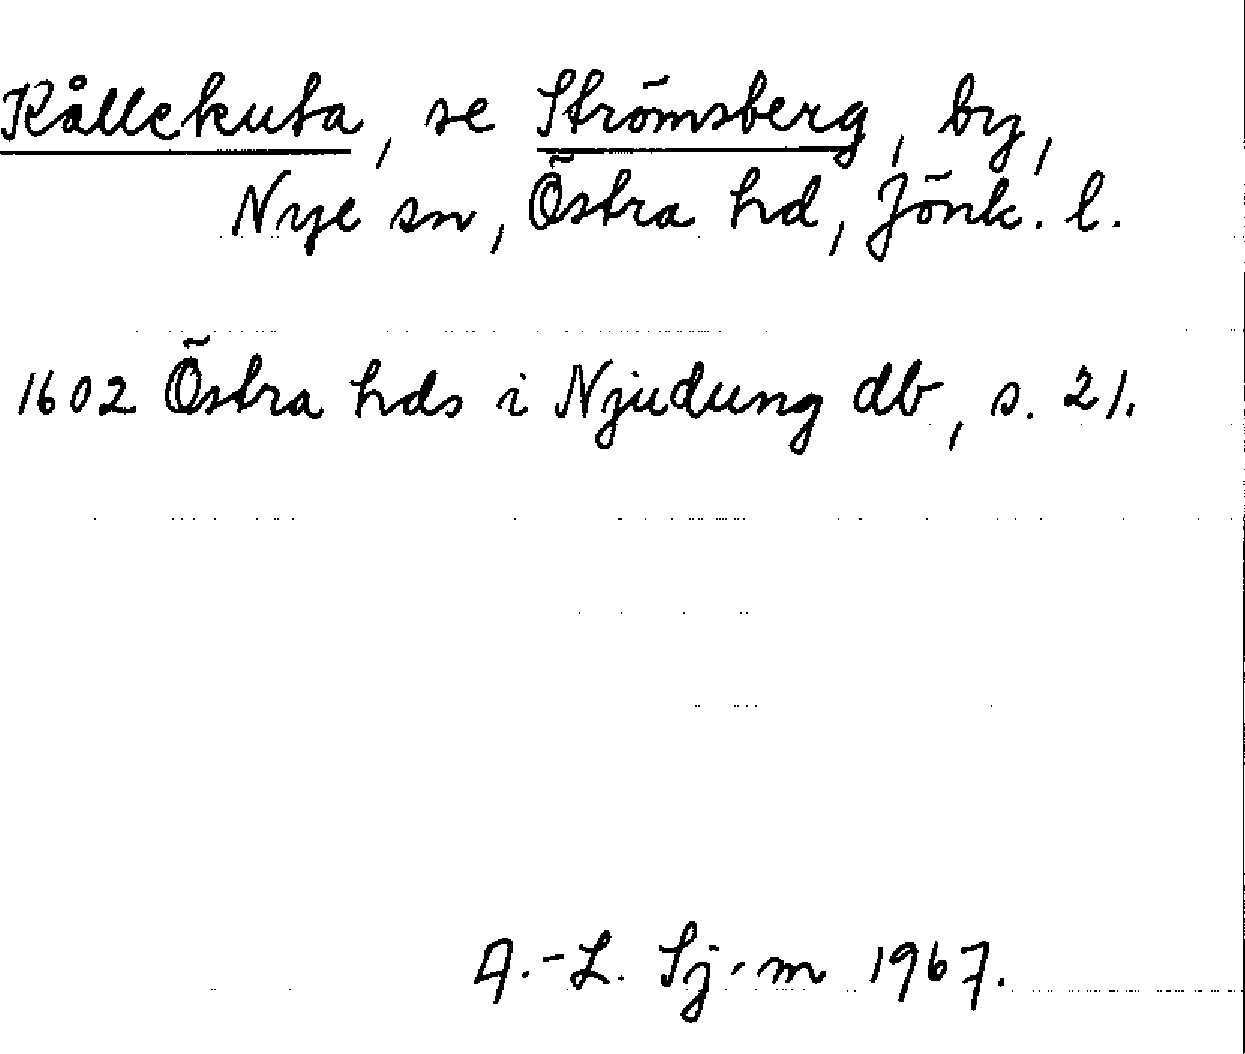 Kållekuta, se Strömsberg, by,
Nye sn, Östra hd, Jönk. l.
1602 Östra hds i Njudung db, s. 21.
A.-L. Sj-m 1967.